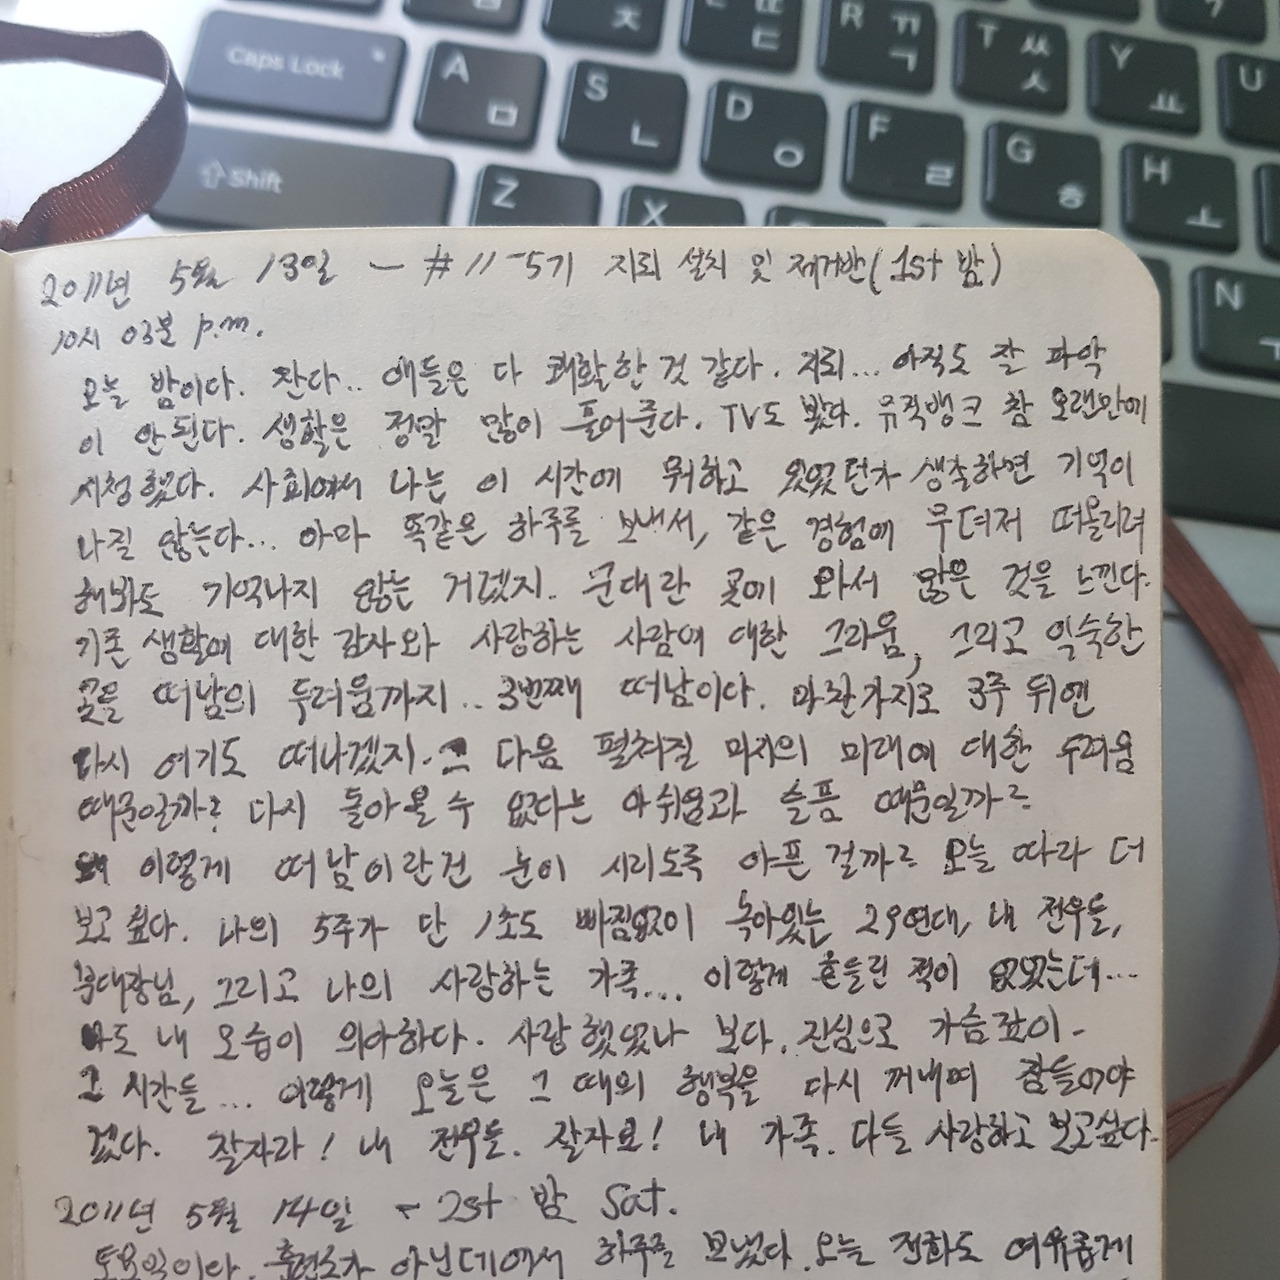 ㅊ
ㅌ
R ㄲ ㄱ
T ㅆ ㅅ
Y ㅛ
U
Caps Lock
A ㅁ
S ㄴ
D ㅇ
F ㄹ
G ㅎ
H ㅗ
Shift
Z
X
N ㅜ
2011년 5월 13일 - #11-5기 지뢰 설치 및 제거반(1st 밤)
10시 03분 p.m.
오늘 밤이다. 잔다.. 애들은 다 쾌활한 것 같다. 지뢰... 아직도 잘 파악
이 안된다. 생활은 정말 많이 풀어준다. TV도 봤다. 뮤직뱅크 참 오랜만에
시청했다. 사회에서 나는 이 시간에 뭐하고 있었던가 생각하면 기억이
나질 않는다... 아마 똑같은 하루를 보내서, 같은 경험에 무뎌져 떠올리려
해봐도 기억나지 않는 거겠지. 군대란 곳에 와서 많은 것을 느낀다.
기존 생활에 대한 감사와 사랑하는 사람에 대한 그리움, 그리고 익숙한
곳을 떠남의 두려움까지.. 3번째 떠남이다. 마찬가지로 3주 뒤엔
다시 여기도 떠나겠지. 그 다음 펼쳐질 미지의 미래에 대한 두려움
때문일까? 다시 돌아올 수 없다는 아쉬움과 슬픔 때문일까?
왜 이렇게 떠남이란건 눈이 시리도록 아픈 걸까? 오늘 따라 더
보고 싶다. 나의 5주가 단 1초도 빠짐없이 녹아있는 29연대, 내 전우들,
부대장님, 그리고 나의 사랑하는 가족... 이렇게 흔들린 적이 없었는데...
나도 내 모습이 의아하다. 사랑했었나 보다. 진심으로 가슴깊이-
그 시간들... 이렇게 오늘은 그 때의 행복을 다시 꺼내며 잠들어야
겠다. 잘자라! 내 전우들. 잘자요! 내 가족. 다들 사랑하고 보고싶다.
2011년 5월 14일 - 2st 밤 Sat.
토요일이다. 훈련소가 아닌데에서 하루를 보냈다. 오늘 전화도 여유롭게